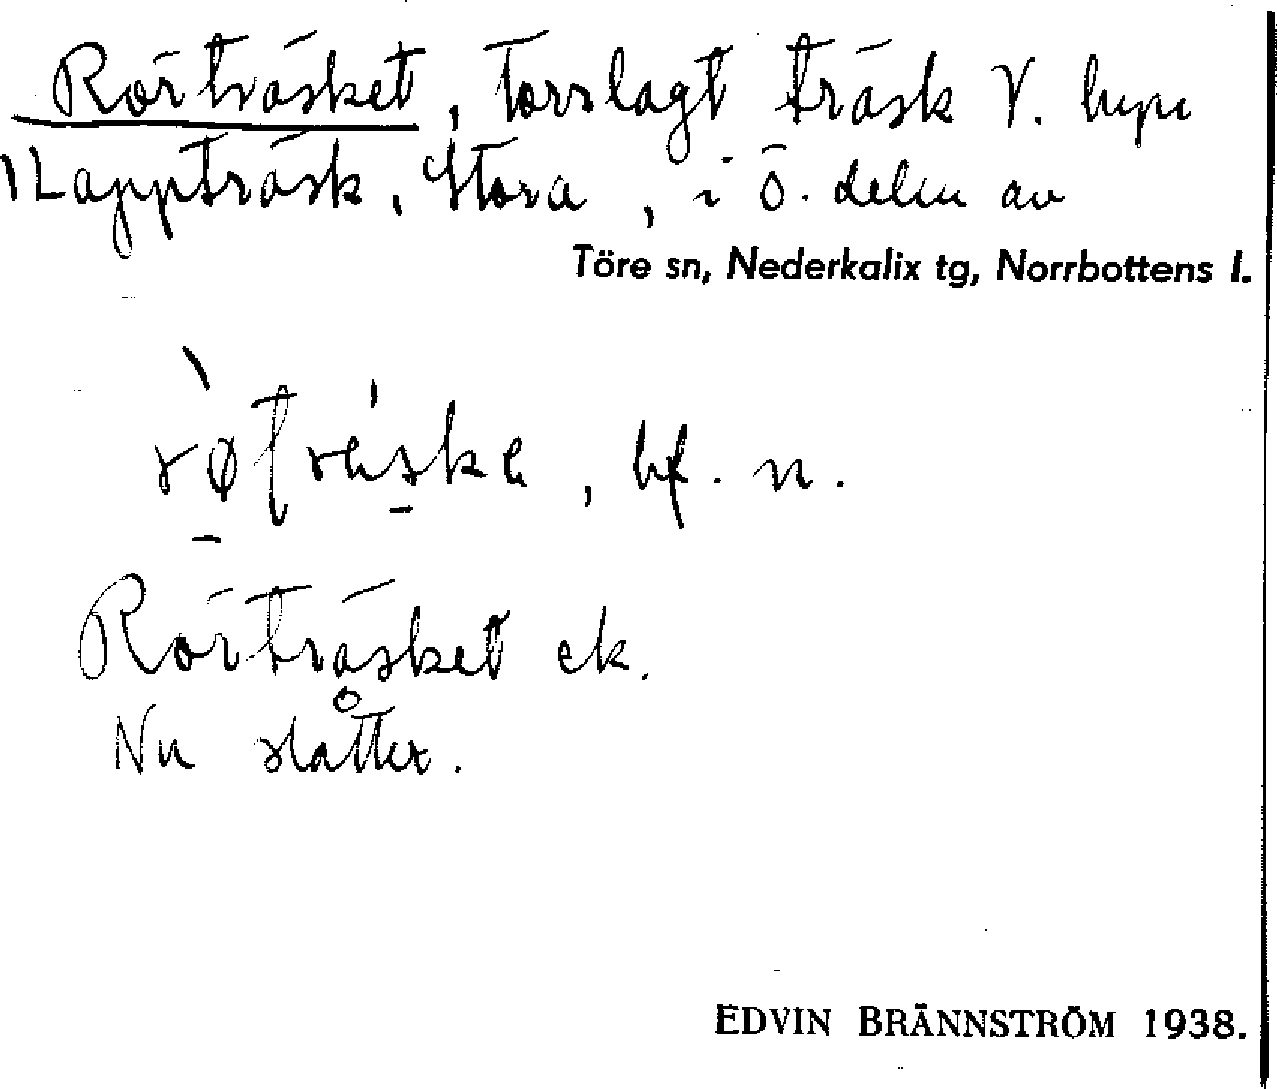 Rörträsket, torrlagt träsk V. byn
Lappträsk, Stora, i ö. delen av
Töre sn, Nederkalix tg, Norrbottens l.
bf. n.
Rörträsket ek.
Nu slåtter.
EDVIN BRÄNNSTRÖM 1938.